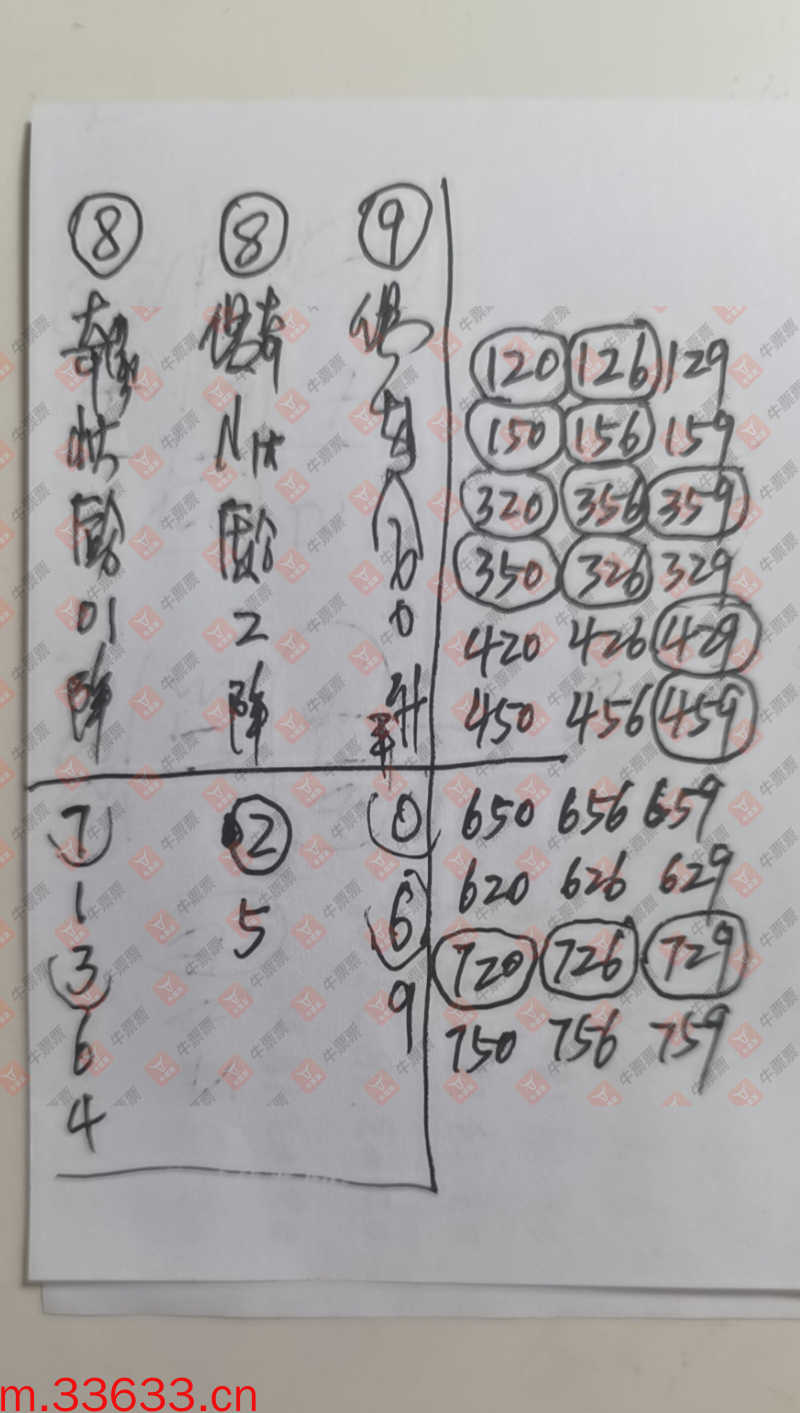 ⑧ ⑧ ⑨
奇偶 偶奇 偶
奇
01 2 0
降 降 升
7 ② 0
1 5 6
3 9
6
4
120 126 129
150 156 159
320 356 359
350 326 329
420 426 429
450 456 459
650 656 659
620 626 629
720 726 729
750 756 759
牛票票
m.33633.cn